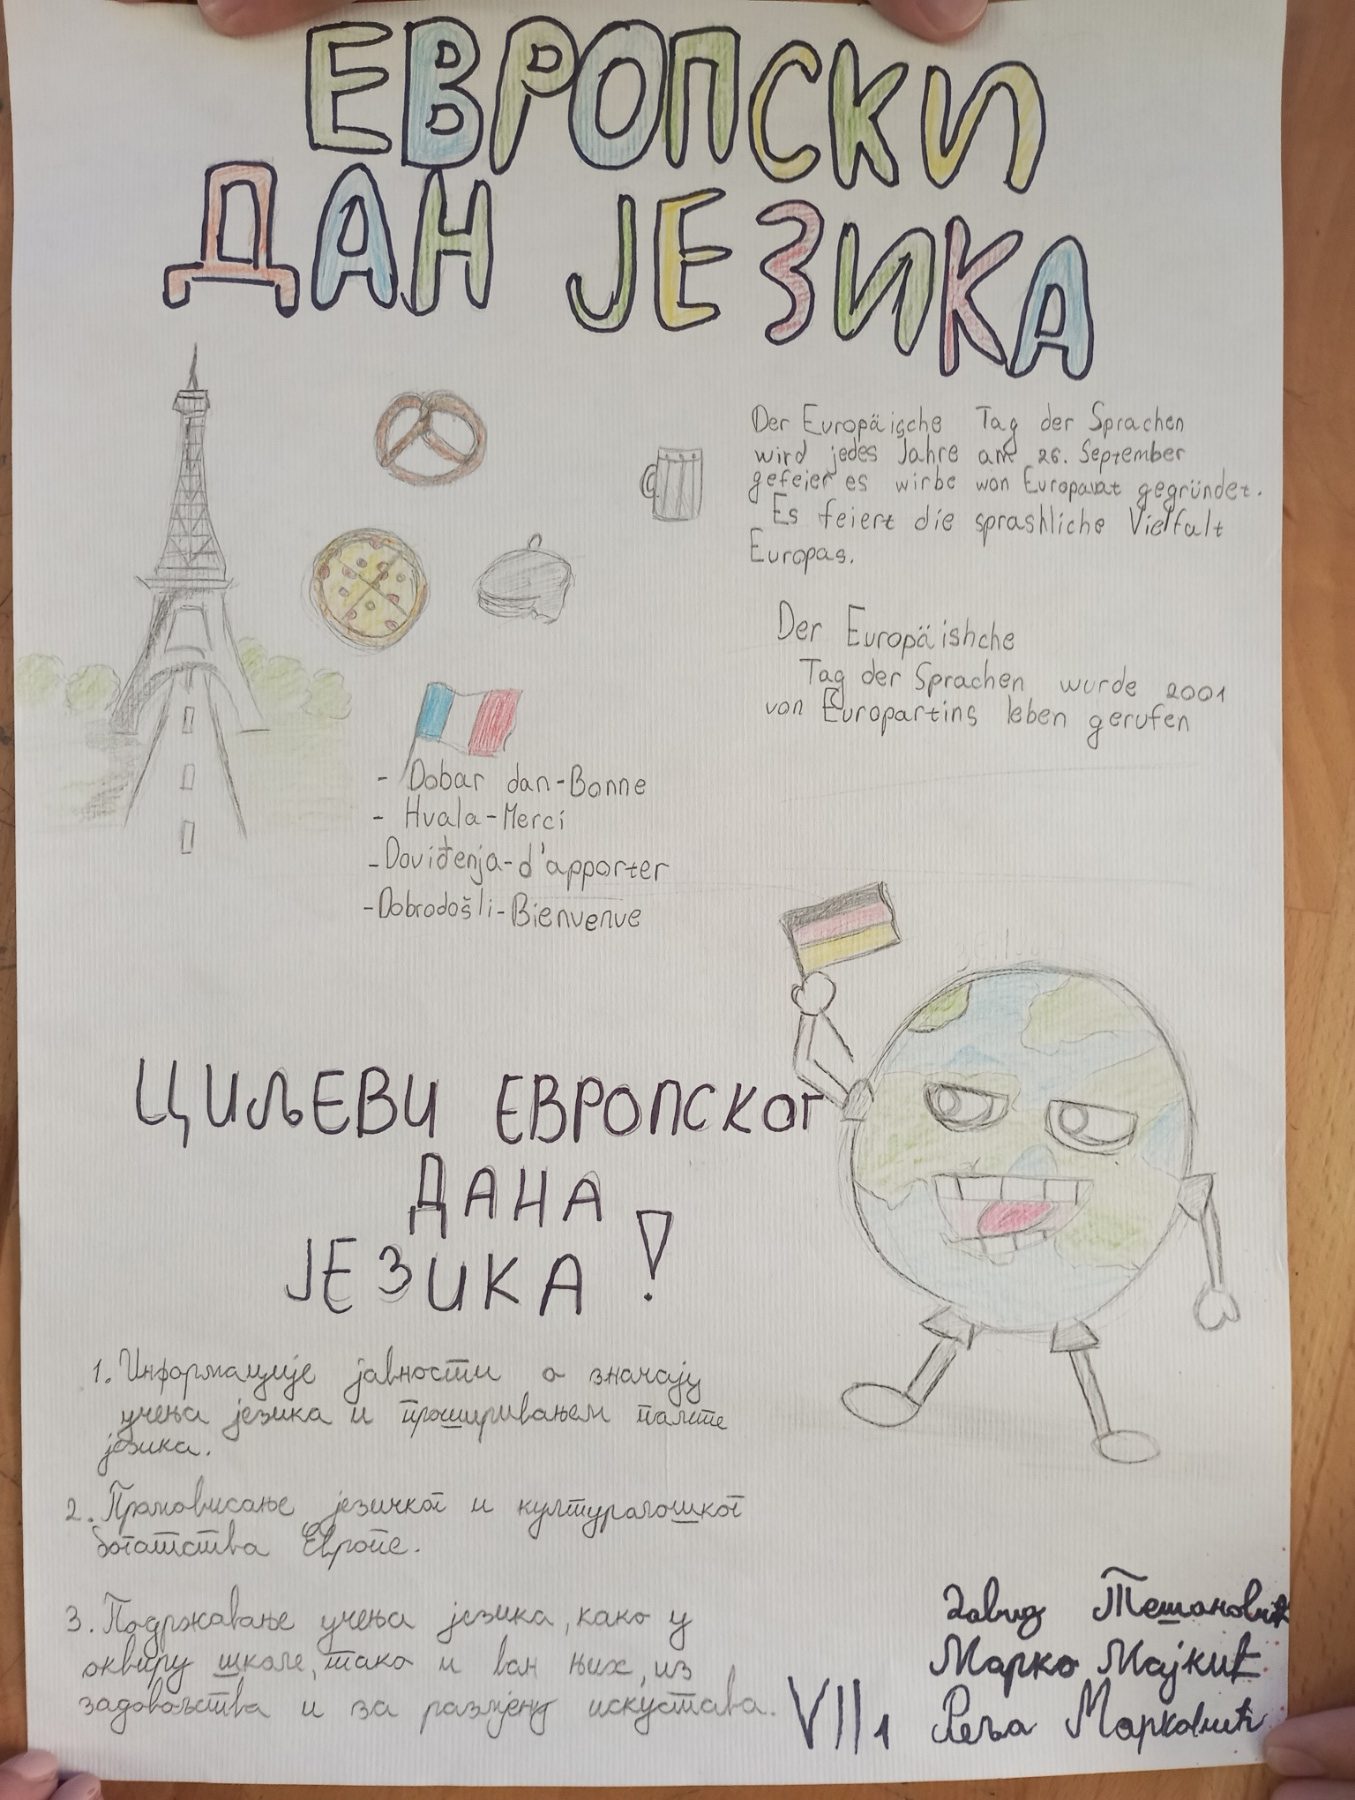 ЕВРОПСКИ
ДАН ЈЕЗИКА
Der Europäische Tag der Sprachen
wird jedes Jahre am 26. September
gefeier es wirbe won Europarat gegründet.
Es feiert die sprashliche Vielfalt
Europas.
Der Europäishche
Tag der Sprachen wurde 2001
von Europartins leben gerufen
- Dobar dan-Bonne
- Hvala-Merci
-Doviđenja-d'apporter
-Dobrodošli-Bienvenue
ЦИЉЕВИ ЕВРОПСКОГ
ДАНА
ЈЕЗИКА!
1. Информације јавности о значају
учења језика и проширивањем палете
језика.
2. Промовисање језичког и културолошког
богатства Европе.
3. Подржавање учења језика, како у
оквиру школе, тако и ван њих, из
задовољства и за размјену искустава.
Давид Тешановић
Марко Мајкић
VII1 Реља Марковић